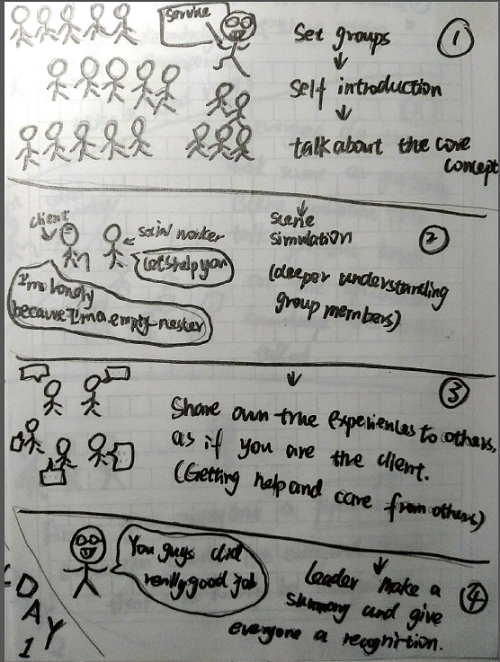 Service
Set groups
1
↓
Self introduction
↓
talk about the core
concept
↓
client
social worker
Let's help you
I'm lonely
because I'm a empty-nester
scene
simulation
2
(deeper understanding
group members)
↓
3
Share own true experiences to others,
as if you are the client.
(Getting help and care from others)
↓
You guys did
really good job
Leader make a
summary and give
everyone a recognition.
4
DAY
1